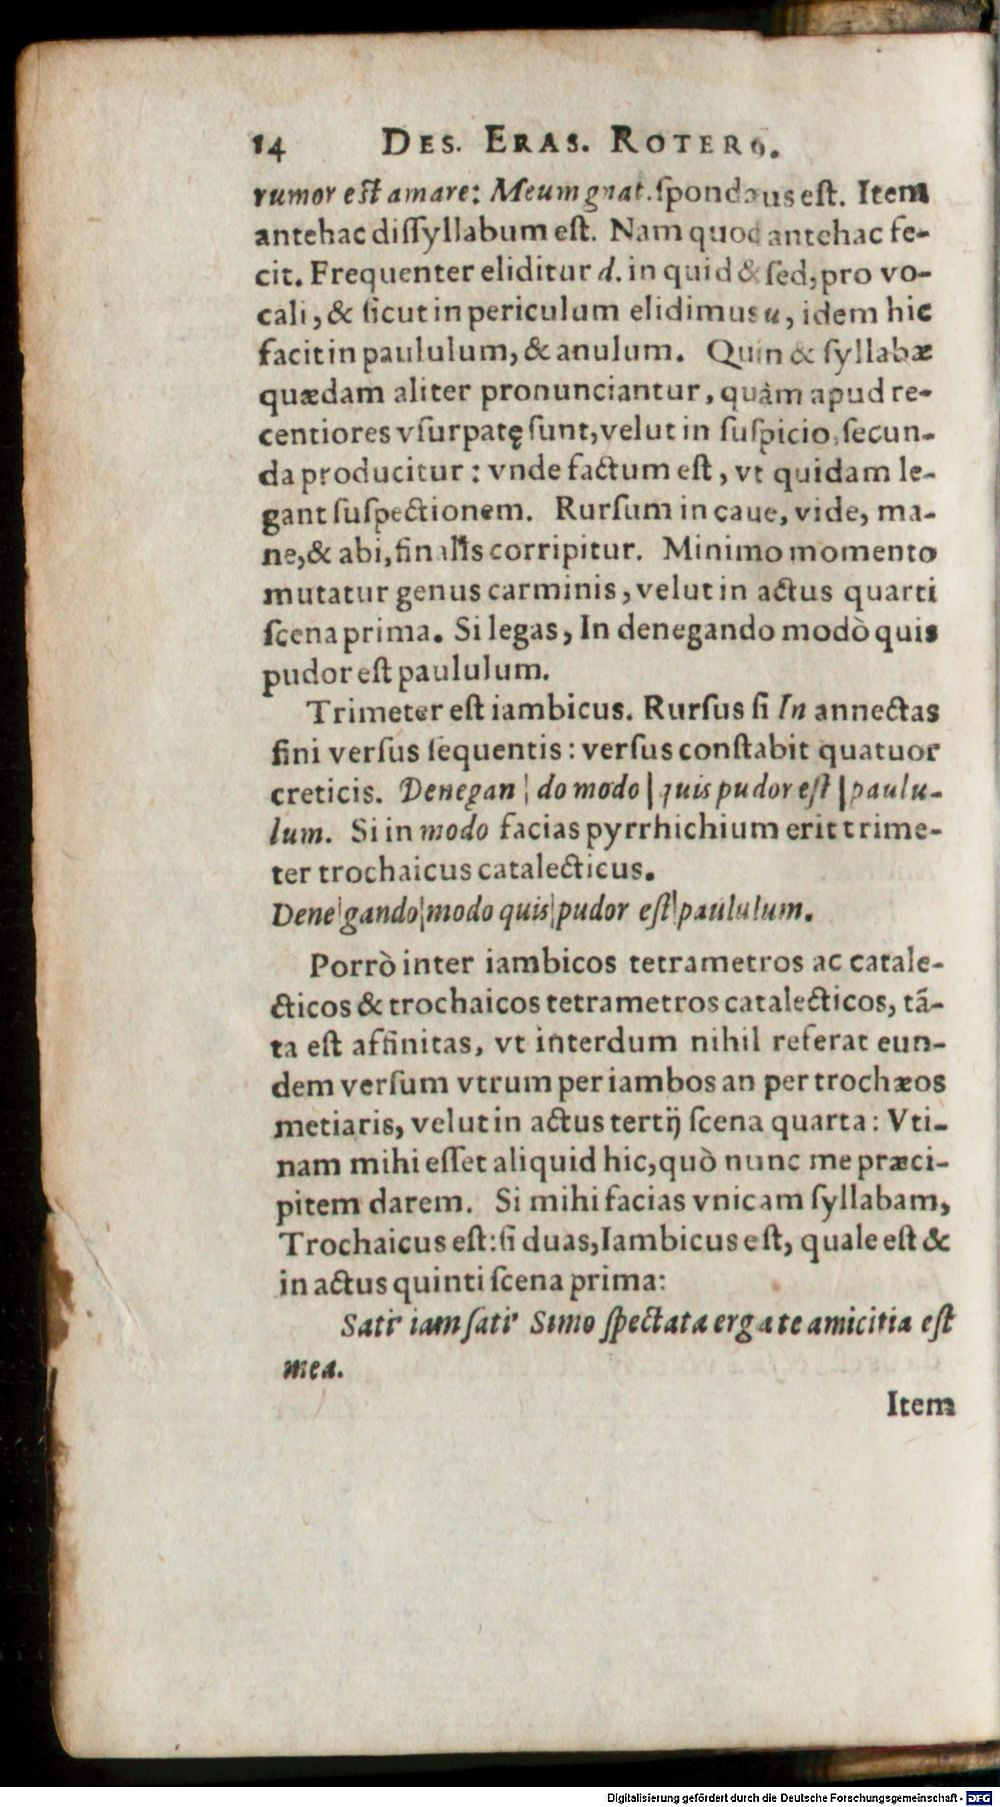 14 DES. ERAS. ROTERO.
rumor est amare: Meum gnat. ſpondæus eſt. Item
antehac diſſyllabum eſt. Nam quod antehac fe-
cit. Frequenter eliditur d. in quid & ſed, pro vo-
cali, & ſicut in periculum elidimus u, idem hic
facit in paululum, & anulum. Quin & ſyllabæ
quædam aliter pronunciantur, quàm apud re-
centiores vſurpatę ſunt, velut in ſuſpicio, ſecun-
da producitur: vnde factum eſt, vt quidam le-
gant ſuſpectionem. Rurſum in caue, vide, ma-
ne, & abi, finalis corripitur. Minimo momento
mutatur genus carminis, velut in actus quarti
ſcena prima. Si legas, In denegando modò quis
pudor eſt paululum.
Trimeter eſt iambicus. Rurſus ſi In annectas
fini verſus ſequentis: verſus conſtabit quatuor
creticis. Denegan | do modo | quis pudor eſt | paulu-
lum. Si in modo facias pyrrhichium erit trime-
ter trochaicus catalecticus.
Dene|gando|modo quis|pudor eſt|paululum.
Porrò inter iambicos tetrametros ac catale-
cticos & trochaicos tetrametros catalecticos, tā-
ta eſt affinitas, vt interdum nihil referat eun-
dem verſum vtrum per iambos an per trochæos
metiaris, velut in actus tertij ſcena quarta: Vti-
nam mihi eſſet aliquid hic, quò nunc me præci-
pitem darem. Si mihi facias vnicam ſyllabam,
Trochaicus eſt: ſi duas, Iambicus eſt, quale eſt &
in actus quinti ſcena prima:
Satis iam ſatis Simo ſpectata erga te amicitia eſt
mea.
Item
Digitalisierung gefördert durch die Deutsche Forschungsgemeinschaft - DFG